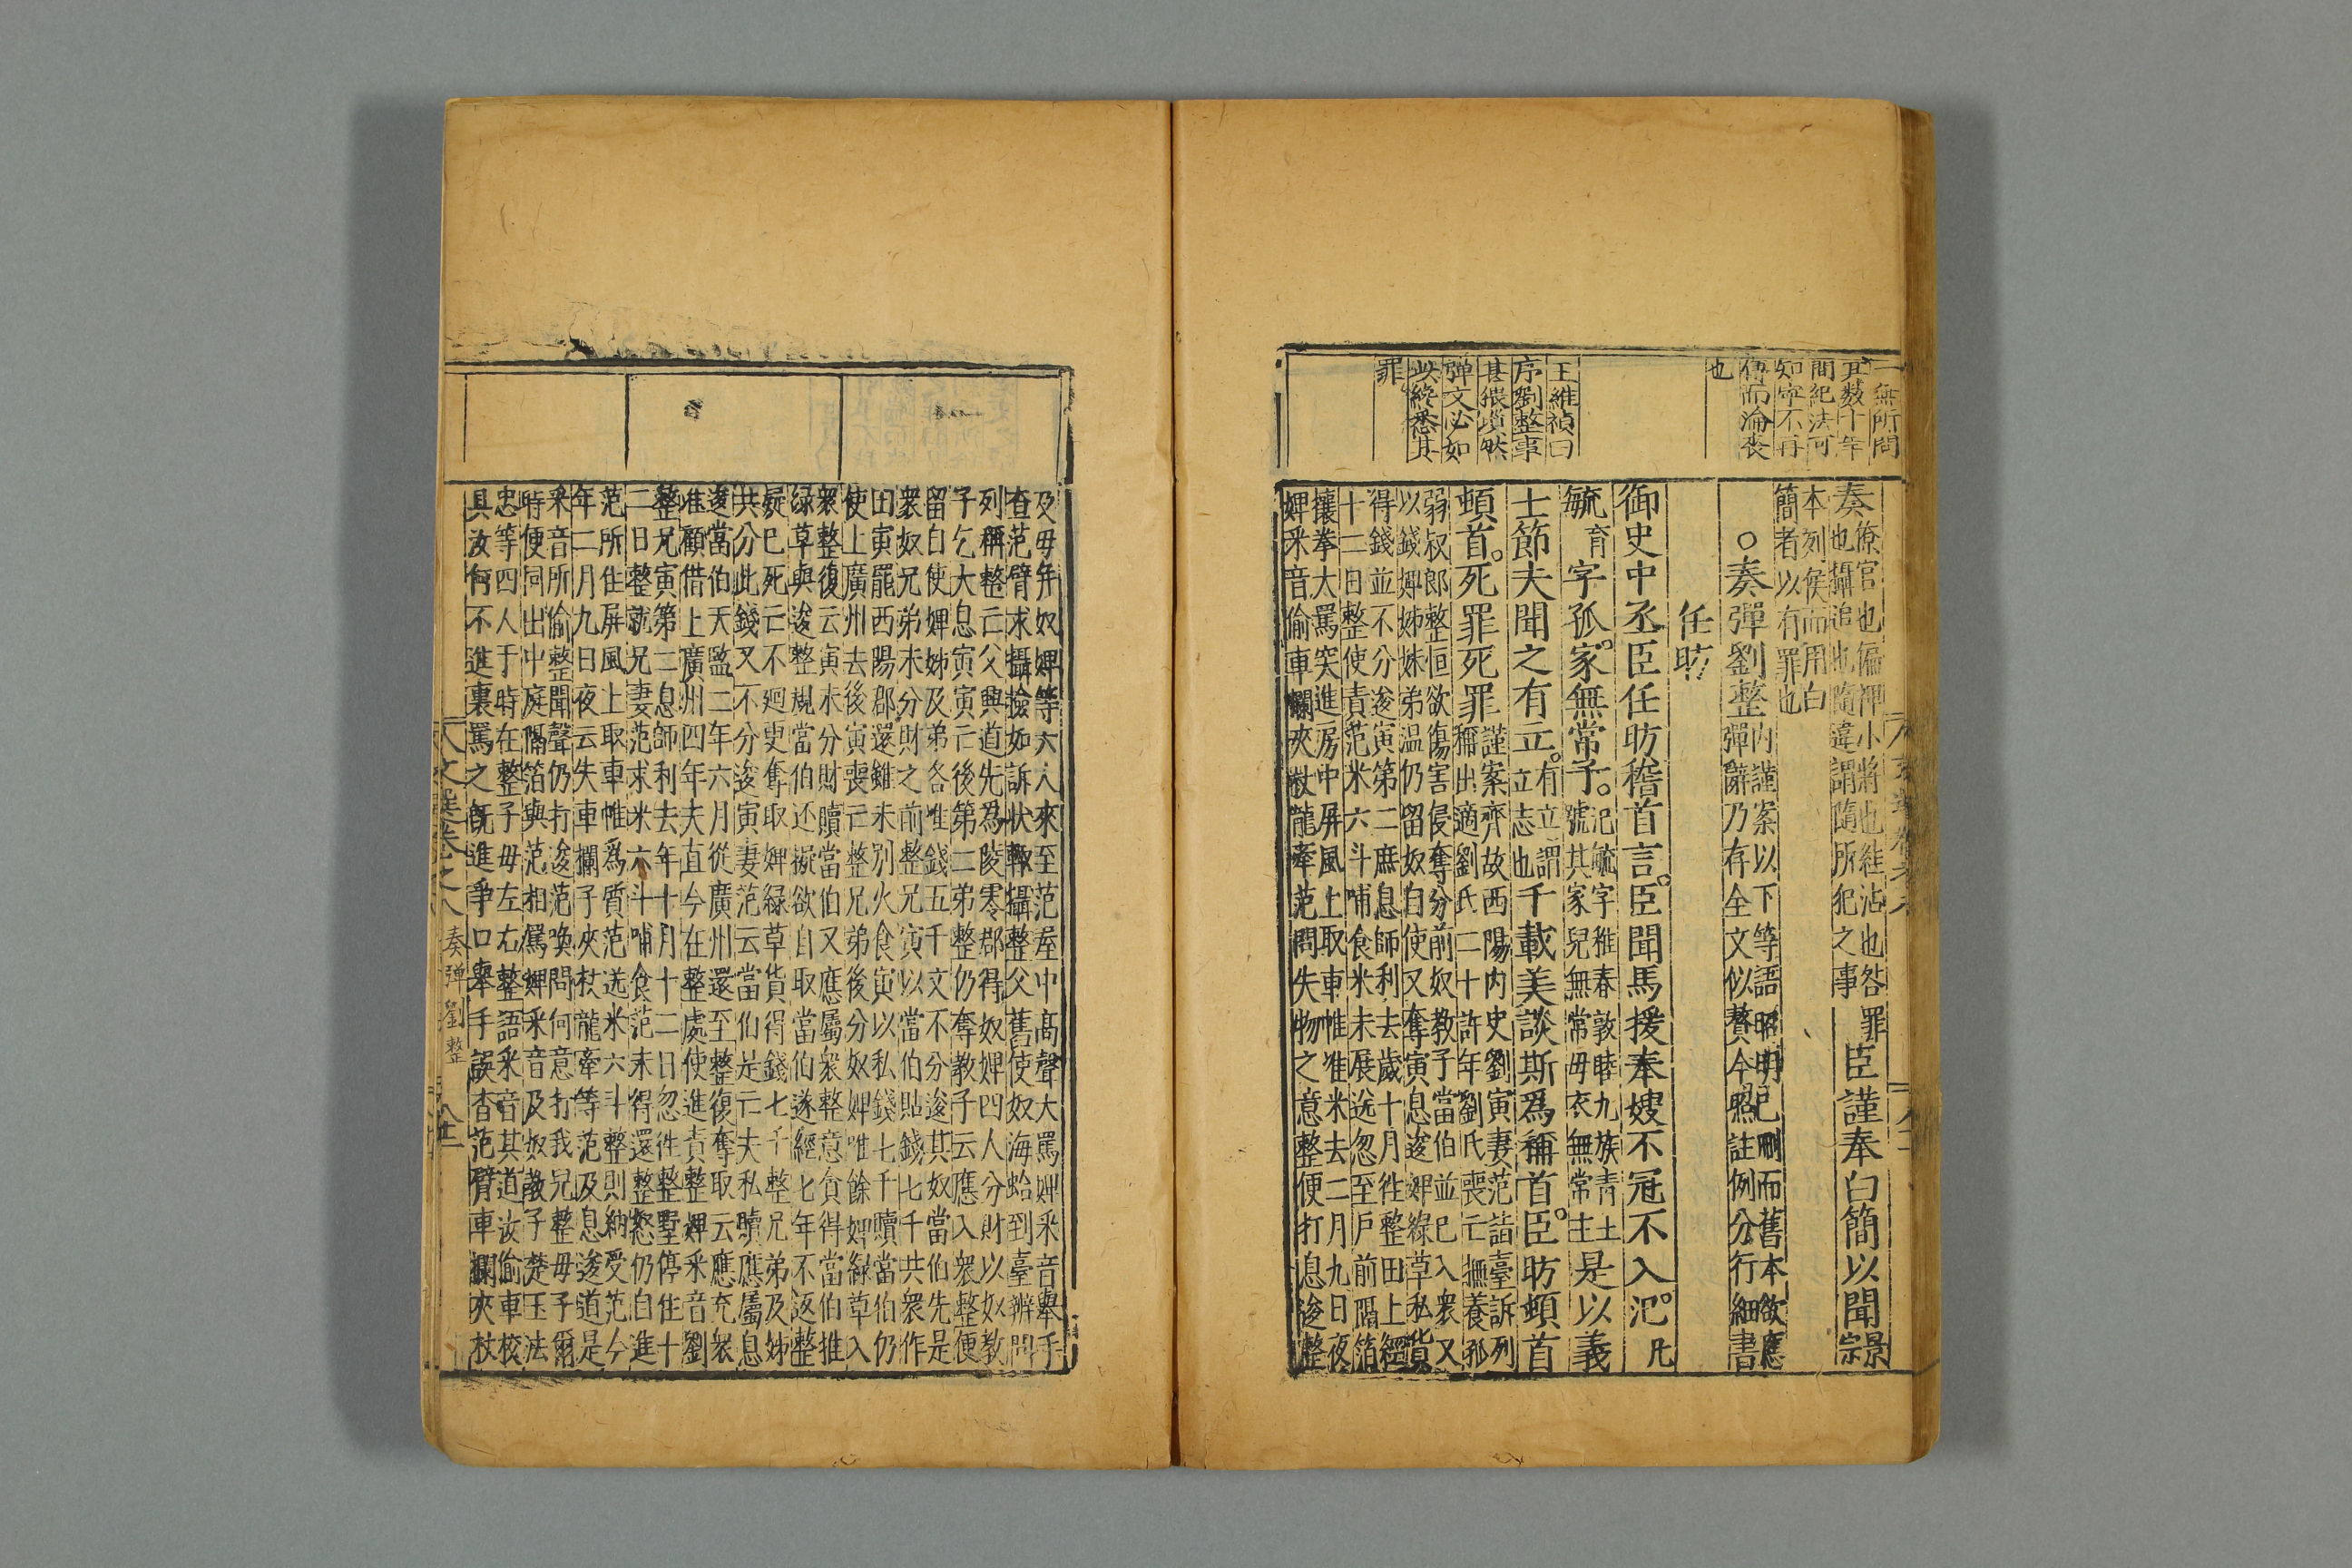 一無所問
其數十年
間紀法可
知寧不再
傳而淪喪
也
王維禎曰
序劉整事
甚猥瑣然
弹文必如
此終悉其
罪
奏僚官也偏裨小將也絓沾也咎罪臣謹奉白簡以聞景
也攝追也隨違謂隨所犯之事宗
本列侯而用白
簡者以有罪也
○奏彈劉整内謹案以下等語昭明已刪而舊本欲應
彈辭乃存全文似贅今照註例分行細書
任昉
御史中丞臣任昉稽首言臣聞馬援奉嫂不冠不入氾凡
毓育字孤家無常子氾毓字稚春敦睦九族青土
號其家兒無常母衣無常主是以義
士節夫聞之有立有立謂
立志也千載美談斯爲稱首臣昉頓首
頓首死罪死罪謹案齊故西陽内史劉寅妻范詣臺訴列
稱出適劉氏二十許年劉氏喪亡撫養孤
弱叔郎整恒欲傷害侵奪分前奴教子當伯並已入衆又
以錢婢姊妹弟温仍留奴自使又奪寅息逡婢綠草私貨
得錢並不分逡寅第二庶息師利去歲十月徃整田上經
十二日整使責范米六斗哺食米未展送忽至戸前隔箔
攘拳大罵突進房中屏風上取車帷准米去二月九日夜
婢采音偷車欄夾杖龍牽范問失物之意整便打息逡整
及母并奴婢等六人來至范屋中高聲大罵婢采音舉手
查范臂求攝檢如訴狀輙攝整父舊使奴海蛤到臺辨問
列稱整亡父興道先爲陵零郡得奴婢四人分財以奴教
子乞大息寅寅亡後第二弟整仍奪教子云應入衆整便
留自使婢姊及弟各准錢五千文不分逡其奴當伯先是
衆奴兄弟未分財之前整兄寅以當伯貼錢七千共衆作
田寅罷西陽郡還雖未别火食寅以私錢七千贖當伯仍
使上廣州去後寅喪亡整兄弟後分奴婢唯餘婢綠草入
衆整復云寅未分財贖當伯又應屬衆整意貪得當伯推
绿草與逡整規當伯还擬欲自取當伯遂經七年不返整
疑已死亡不廻更奪取婢綠草貨得錢七千整兄弟及姊
共分此錢又不分逡寅妻范云當伯是亡夫私贖應屬息
逡當伯天監二年六月從廣州還至整復奪取云應充衆
准顧借上廣州四年夫直今在整處使進責整婢采音劉
整兄寅第二息師利去年十月十二日忽徃整墅停住十
二日整就兄妻范求米六斗哺食范未得還整怒仍自進
范所住屏風上取車帷爲質范送米六斗整則納受范今
年二月九日夜云失車欄子夾杖龍牽等范及息逡道是
采音所偷整聞聲仍打逡范喚問何意打我兒整母子爾
時便同出中庭隔箔與范相罵婢采音及奴教子楚玉法
忠等四人于時在整子母左右整語采音其道汝偷車校
具汝何不進裏罵之既進爭口舉手誤查范臂車欄夾杖
文選卷之八 奏弹劉整